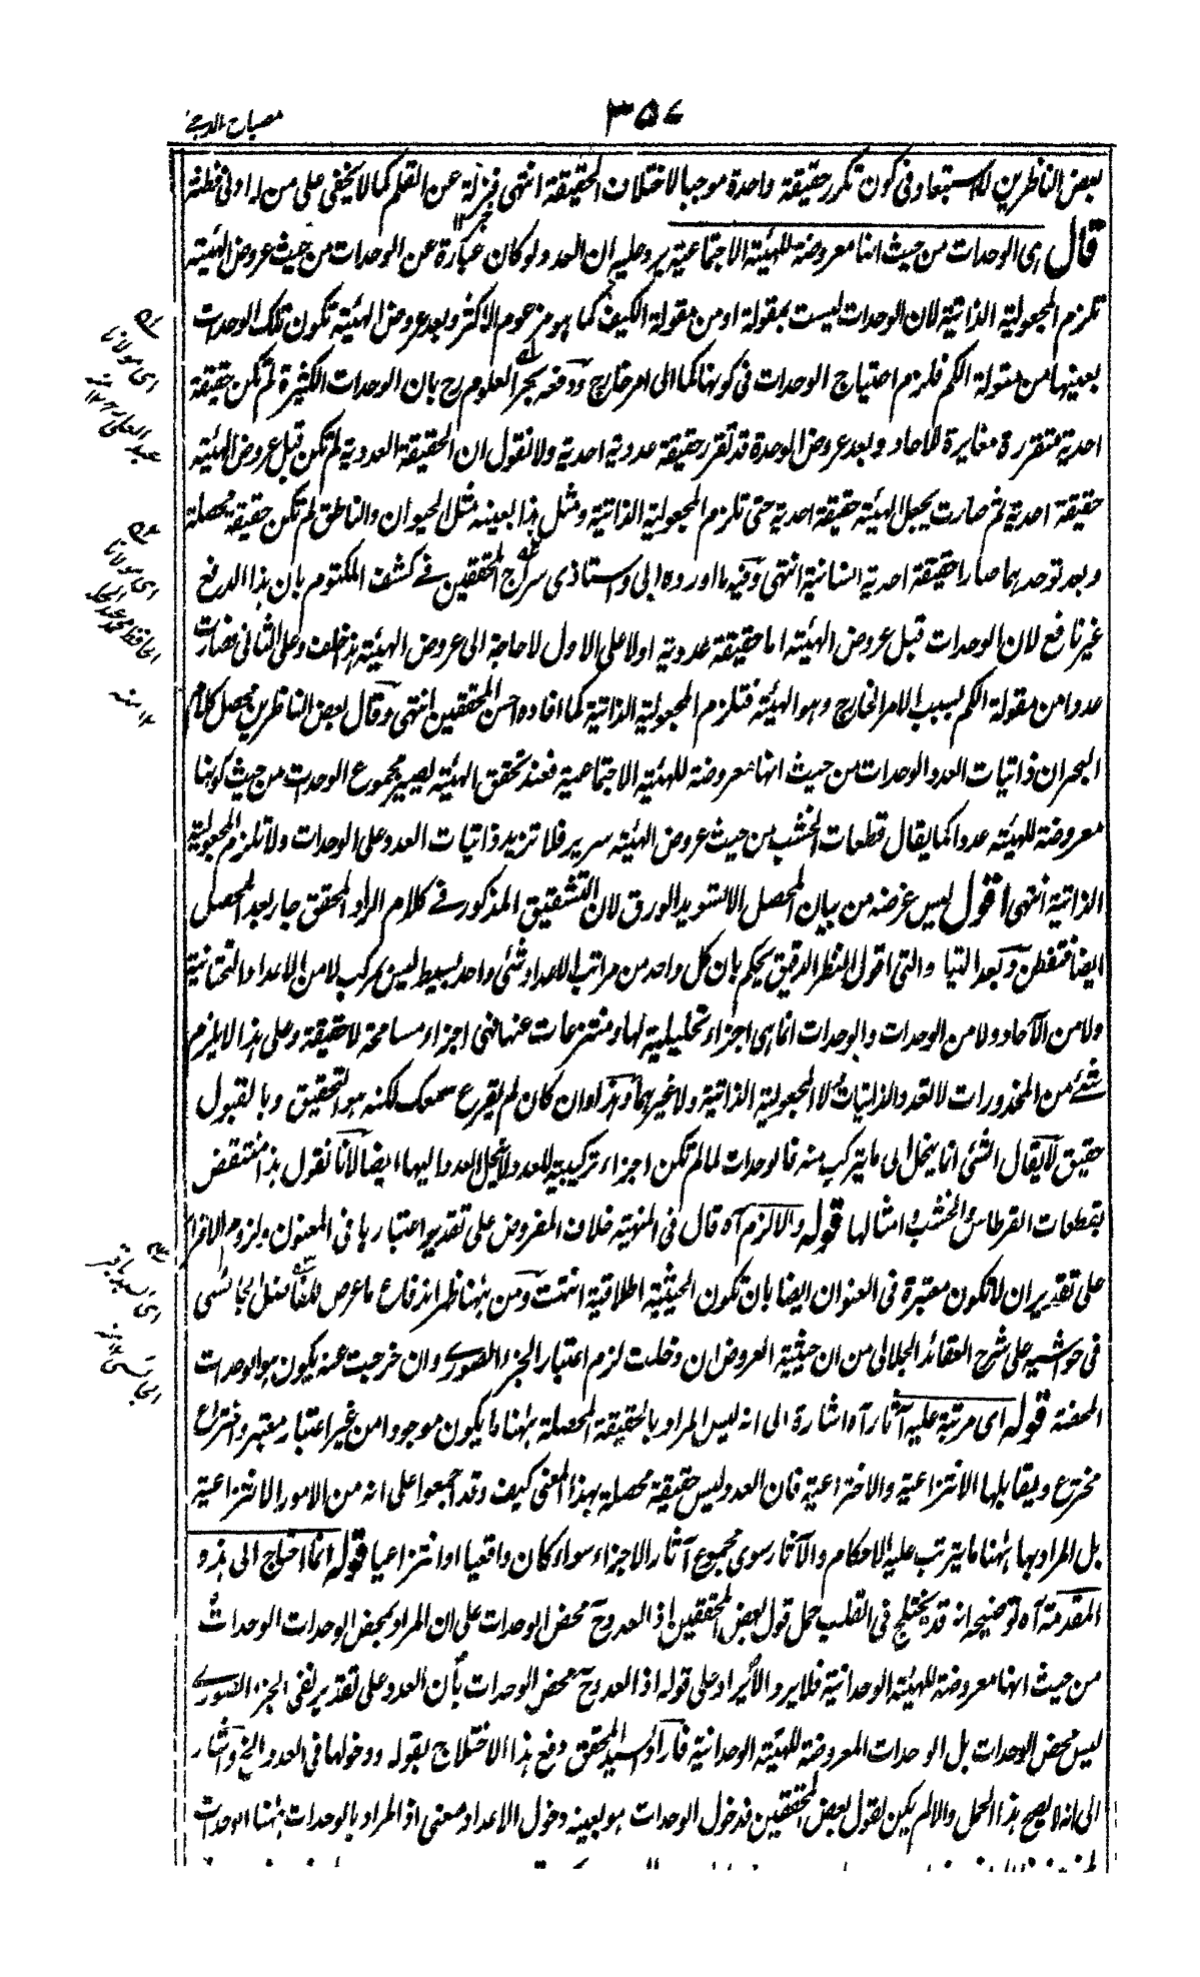 ٣٥٧
مصباح الدجى
بعض الناظرين له استبعاد فى كون تكرر حقيقة واحدة موجبا لاختلاف الحقيقة انتهى فبمزلة عن القلم كما لا يخفى على من له ادنى فطنة
قال اى الوحدات من حيث انها معروضة للهيئة الاجتماعية يرد عليه ان العدد لو كان عبارة عن الوحدات من حيث عروض الهيئة
تلزم المجعولية الذاتية لان الوحدات ليست بمقولة او من مقولة الكيف كما هو مزعوم الاكثر وبعد عروض الهيئة تكون تلك الوحدات
بعينها من مقولة الكم فلزم احتياج الوحدات فى كونها كما الى امر خارج ودفعه بحر العلوم رح بان الوحدات الكثيرة لم تكن حقيقة
احدية متقررة مغايرة للآحاد وبعد عروض الوحدة قد تقرر حقيقة عددية احدية ولا نقول ان الحقيقة العددية لم تكن قبل عروض الهيئة
حقيقة احدية ثم صارت بجعل الهيئة حقيقة احدية حتى تلزم المجعولية الذاتية ومثل هذا بعينه مثل الحيوان والناطق لم تكن حقيقة محصلة
وبعد توحدهما صارا حقيقة احدية انسانية انتهى وفيه ما اورده ابى واستاذى سراج المحققين فى كشف المكتوم بان هذا الدفع
غير نافع لان الوحدات قبل عروض الهيئة اما حقيقة عددية اولا على الاول لا حاجة الى عروض الهيئة هذا خلف وعلى الثانى فصارت
عددا من مقولة الكم لسبب الامر الخارج وهو الهيئة فتلزم المجعولية الذاتية كما افاده احسن المحققين انتهى وقال بعض الناظرين محصل كلام
البحر ان ذاتيات العدد الوحدات من حيث انها معروضة للهيئة الاجتماعية فعند تحقق الهيئة يصير مجموع الوحدات من حيث كونها
معروضة للهيئة عددا كما يقال قطعات الخشب من حيث عروض الهيئة سرير فلا تزيد ذاتيات العدد على الوحدات ولا تلزم المجعولية
الذاتية انتهى اقول ليس غرضه من بيان المحصل الا تسويد الورق لان التشقيق المذكور فى كلام الراد المحقق جار بعد المحصل
ايضا فتفطن وبعد اللتيا والتى اقول النظر الدقيق يحكم بان كل واحد من مراتب الاعداد شئ واحد بسيط ليس بمركب لا من الاعداد التحتانية
ولا من الآحاد ولا من الوحدات والوحدات انما هى اجزاء تحليلية لها ومنتزعات عنها فهى اجزاء مسامحة لا حقيقة وعلى هذا لا يلزم
شئ من المحذورات لا تعدد الذاتيات ولا المجعولية الذاتية ولا غيرهما وهذا وان كان لم يقرع سمعك لكنه هو التحقيق وبالقبول
حقيق لا يقال الشئ انما ينحل الى ما يتركب منه فالوحدات لما لم تكن اجزاء تركيبية للعدد لا ينحل العدد اليها ايضا لانا نقول هذا منتقض
بقطعات القرطاس والخشب وامثالها قوله والا لزم آه قال فى المنهية خلاف المفروض على تقدير اعتبارها فى المعنون ولزوم الاقرار
على تقدير ان لا تكون معتبرة فى العنوان ايضا بان تكون الحيثية اطلاقية انتهت ومن ههنا ظهر اندفاع ما عرض للفاضل الجائسى
فى حواشيه على شرح العقائد الجلالى من ان حيثية العروض ان دخلت لزم اعتبار الجزء الصورى وان خرجت عنه يكون هو الوحدات
المحضة قوله اى مرتبة عليه آثار آه اشارة الى انه ليس المراد بالحقيقة المحصلة ههنا ما يكون موجودا من غير اعتبار معتبر واختراع
مخترع ويقابلها الانتزاعية والاختراعية فان العدد ليس حقيقة محصلة بهذا المعنى كيف وقد اجمعوا على انه من الامور الانتزاعية
بل المراد بها ههنا ما يترتب عليه الاحكام والآثار سوى مجموع آثار الاجزاء سواء كان واقعيا او انتزاعيا قوله انما احتاج الى هذه
المقدمة آه توضيحه انه قد يختلج فى القلب حمل قول بعض المحققين اذ العدد ح محض الوحدات على ان المراد بمحض الوحدات الوحدات
من حيث انها معروضة للهيئة الوحدانية فلا يرد الايراد على قوله اذ العدد ح محض الوحدات بان العدد على تقدير نفى الجزء الصورى
ليس محض الوحدات بل الوحدات المعروضة للهيئة الوحدانية فاراد السيد المحقق دفع هذا الاختلاج بقوله ودخولها فى العدد الخ واشار
الى انه لا يصح هذا الحمل والا لم يكن لقول بعض المحققين فدخول الوحدات هو بعينه دخول الاعداد معنى اذ المراد بالوحدات ههنا الوحدات
اى مولانا
عبد العلى ١٢ منه
اى مولانا
الحافظ محمد عبد الحليم
١٢ منه
اى السيد باقر
الجائسى ١٢ منه